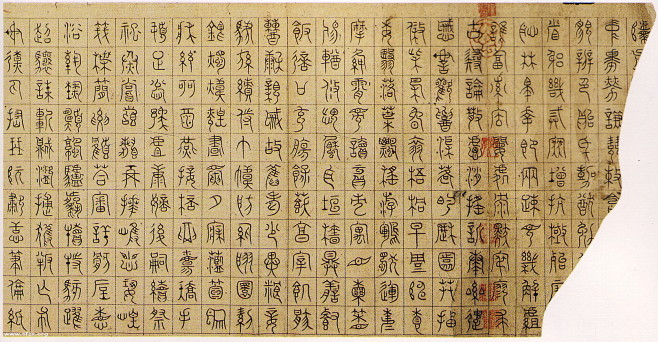 庸勞謙謹敕
貌辨色貽厥嘉猷勉
省躬譏誡寵增抗極殆
恥林皋幸即兩疏見機解組
誰逼索居閒處沉默寂寥求
古尋論散慮逍遙欣奏累遣
慼謝歡招渠荷的歷園莽抽
條枇杷晚翠梧桐早凋陳根
委翳落葉飄颻遊鵾獨運凌
摩絳霄耽讀翫市寓目囊箱
易輶攸畏屬耳垣牆具膳餐
飯適口充腸飽飫烹宰飢厭
糟糠親戚故舊老少異糧妾
御績紡侍巾帷房紈扇圓潔
銀燭煒煌晝眠夕寐藍筍象
床弦歌酒宴接杯舉觴矯手
頓足悅豫且康嫡後嗣續祭
祀蒸嘗稽顙再拜悚懼恐惶
牋牒簡要顧答審詳骸垢想
浴執熱願涼驢騾犢特駭躍
超驤誅斬賊盜捕獲叛亡布
射僚丸嵇琴阮嘯恬筆倫紙